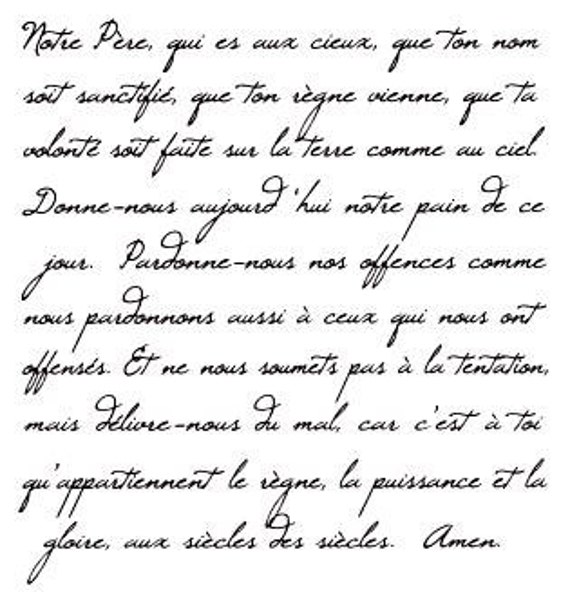 Notre Père, qui es aux cieux, que ton nom
soit sanctifié, que ton règne vienne, que ta
volonté soit faite sur la terre comme au ciel.
Donne-nous aujourd'hui notre pain de ce
jour. Pardonne-nous nos offences comme
nous pardonnons aussi à ceux qui nous ont
offensés. Et ne nous soumets pas à la tentation,
mais délivre-nous du mal, car c'est à toi
qu'appartiennent le règne, la puissance et la
gloire, aux siècles des siècles. Amen.